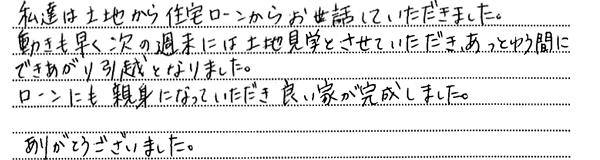 私達は土地から住宅ローンからお世話していただきました。
動きも早く次の週末には土地見学とさせていただき、あっとゆう間に
できあがり引越となりました。
ローンにも親身になっていただき良い家が完成しました。
ありがとうございました。